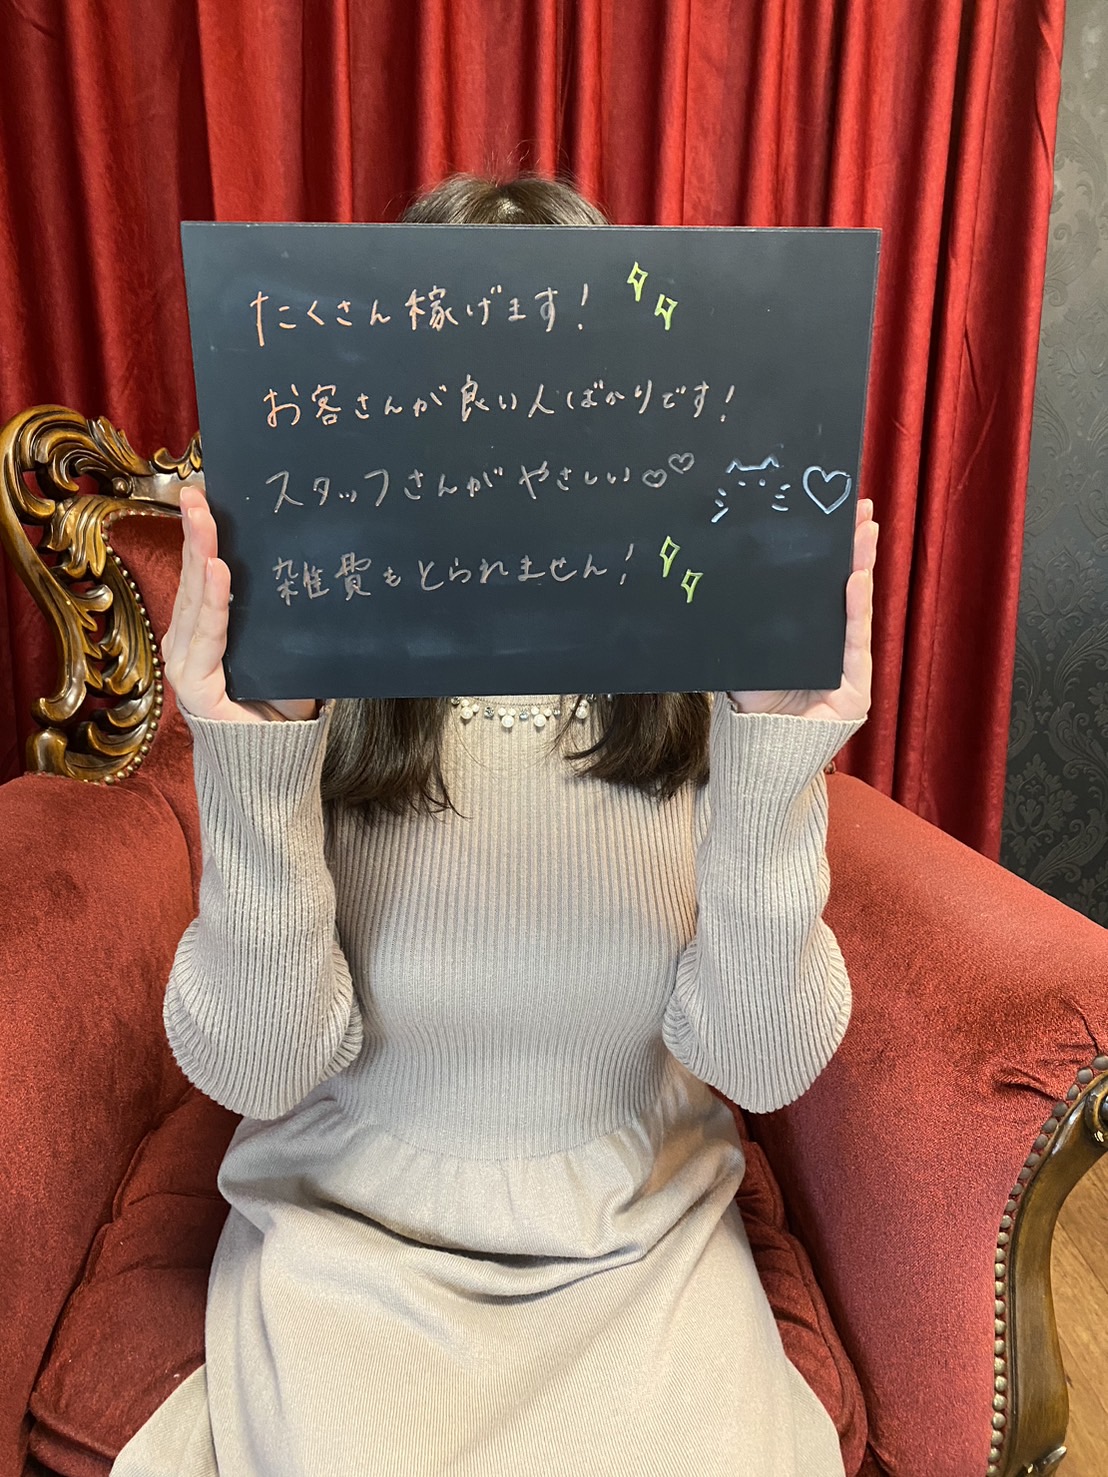 たくさん稼げます!
お客さんが良い人ばかりです!
スタッフさんがやさしい♡♡
雑費もとられません!